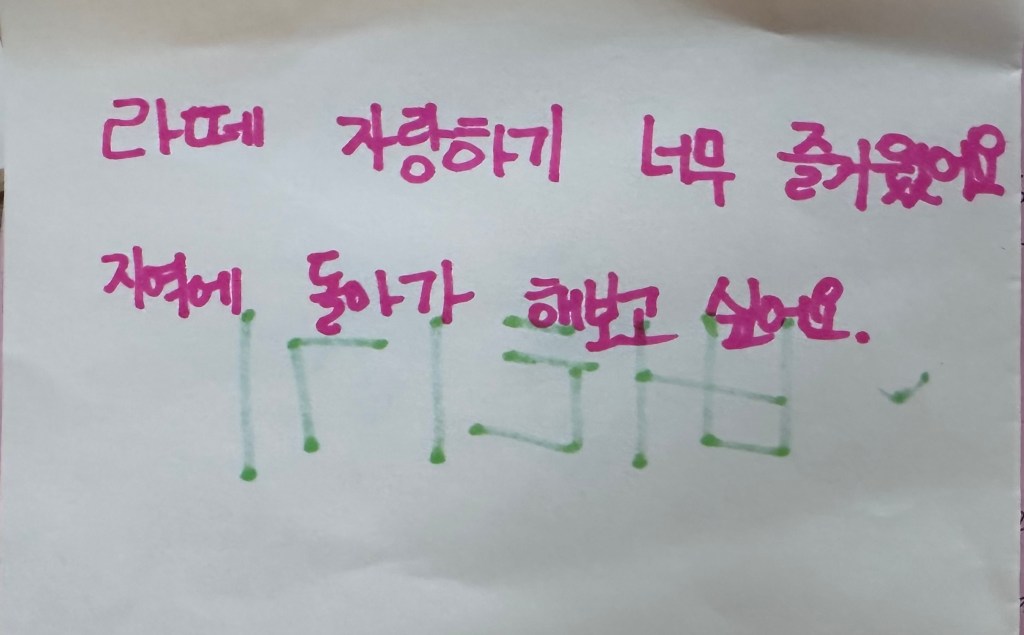 라떼 자랑하기 너무 즐거웠어요
지역에 돌아가 해보고 싶어요.